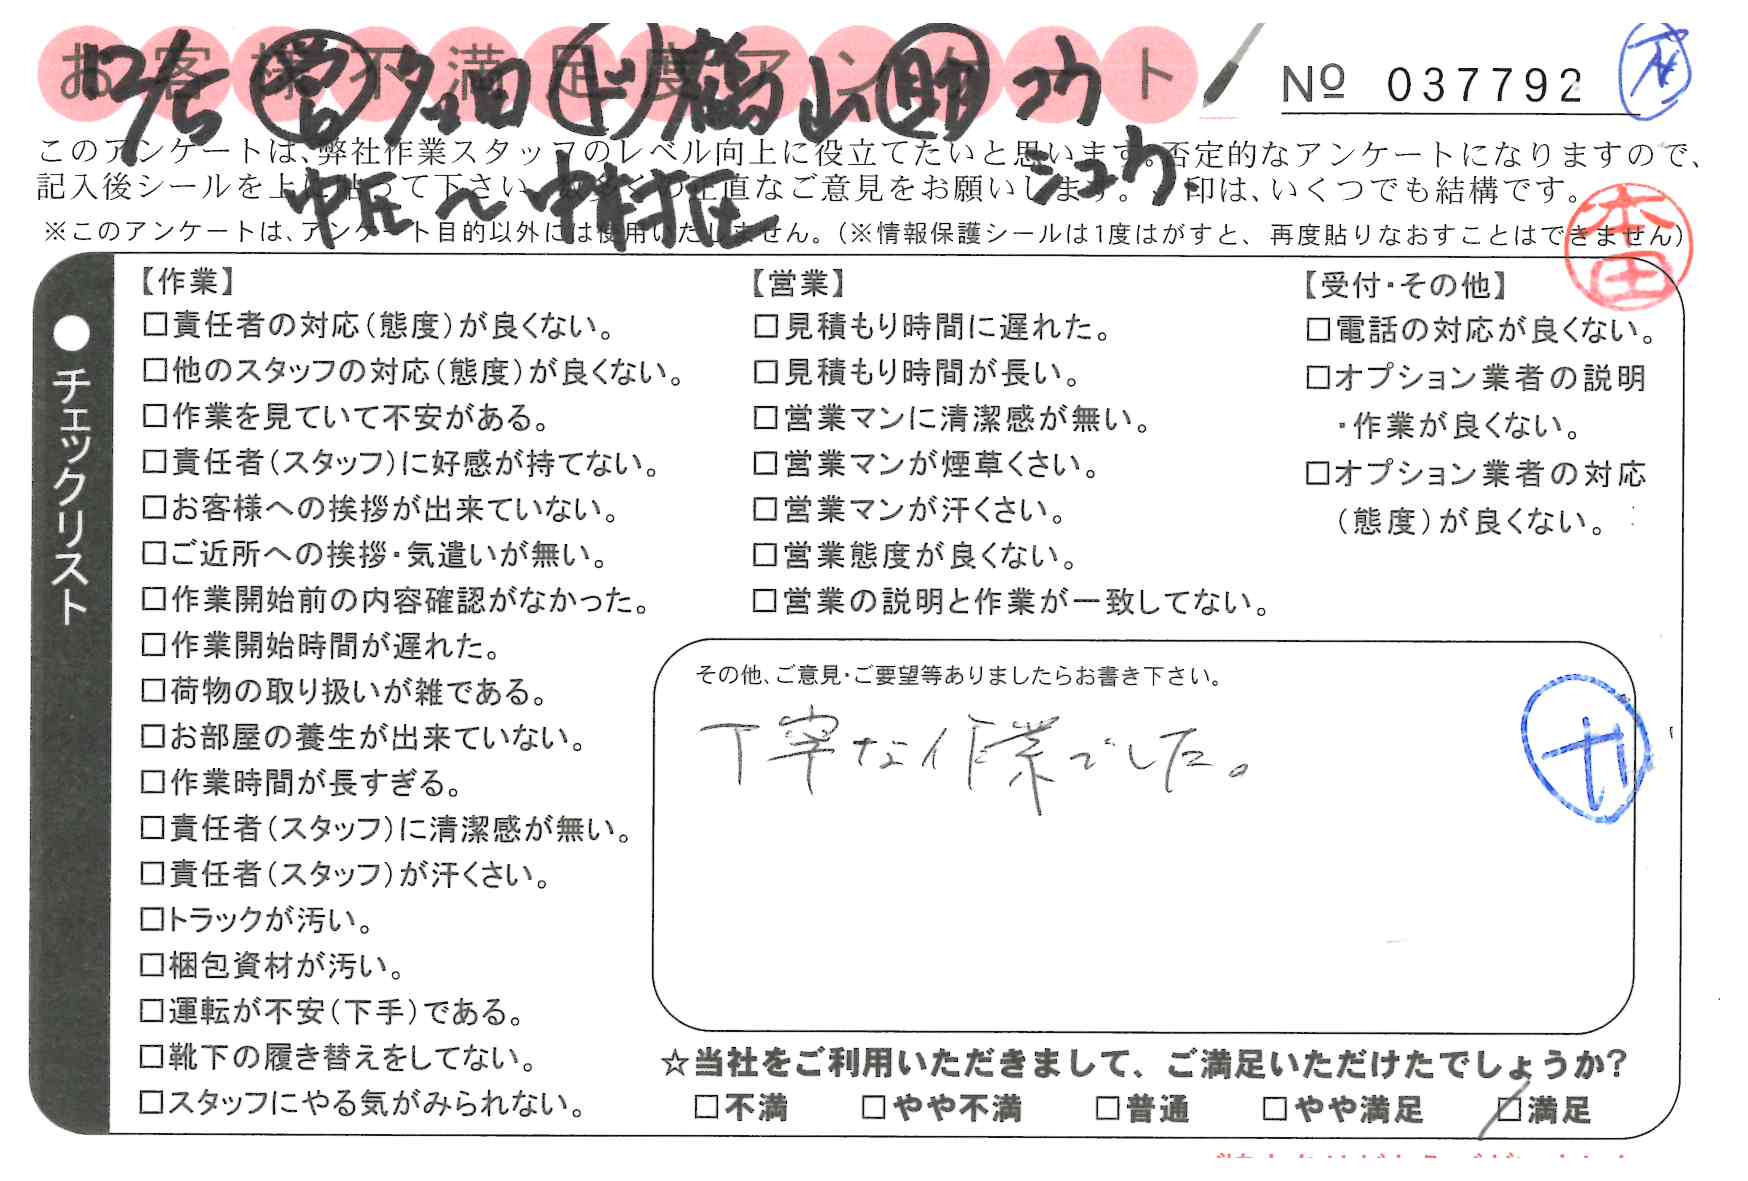 お客様不満足度アンケート
No 037792
12/5 営 多田 ド 鶴山 助 コウ
シュウ
中圧〜中村圧
このアンケートは、弊社作業スタッフのレベル向上に役立てたいと思います。否定的なアンケートになりますので、
記入後シールを上に貼って下さい。数多くの正直なご意見をお願いします。 印は、いくつでも結構です。
※このアンケートは、アンケート目的以外には使用いたしません。(※情報保護シールは1度はがすと、再度貼りなおすことはできません)
本田
●チェックリスト
【作業】
□責任者の対応(態度)が良くない。
□他のスタッフの対応(態度)が良くない。
□作業を見ていて不安がある。
□責任者(スタッフ)に好感が持てない。
□お客様への挨拶が出来ていない。
□ご近所への挨拶・気遣いが無い。
□作業開始前の内容確認がなかった。
□作業開始時間が遅れた。
□荷物の取り扱いが雑である。
□お部屋の養生が出来ていない。
□作業時間が長すぎる。
□責任者(スタッフ)に清潔感が無い。
□責任者(スタッフ)が汗くさい。
□トラックが汚い。
□梱包資材が汚い。
□運転が不安(下手)である。
□靴下の履き替えをしてない。
□スタッフにやる気がみられない。
【営業】
□見積もり時間に遅れた。
□見積もり時間が長い。
□営業マンに清潔感が無い。
□営業マンが煙草くさい。
□営業マンが汗くさい。
□営業態度が良くない。
□営業の説明と作業が一致してない。
【受付・その他】
□電話の対応が良くない。
□オプション業者の説明
・作業が良くない。
□オプション業者の対応
(態度)が良くない。
その他、ご意見・ご要望等ありましたらお書き下さい。
丁寧な作業でした。
☆当社をご利用いただきまして、ご満足いただけたでしょうか?
□不満 □やや不満 □普通 □やや満足 □満足